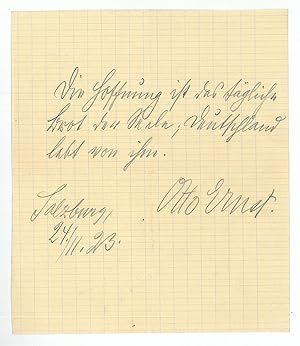 Die Hoffnung ist das tägliche
Brot der Seele; Deutschland
lebt von ihm.
Otto Ernst.
Salzburg,
24./II. 23.